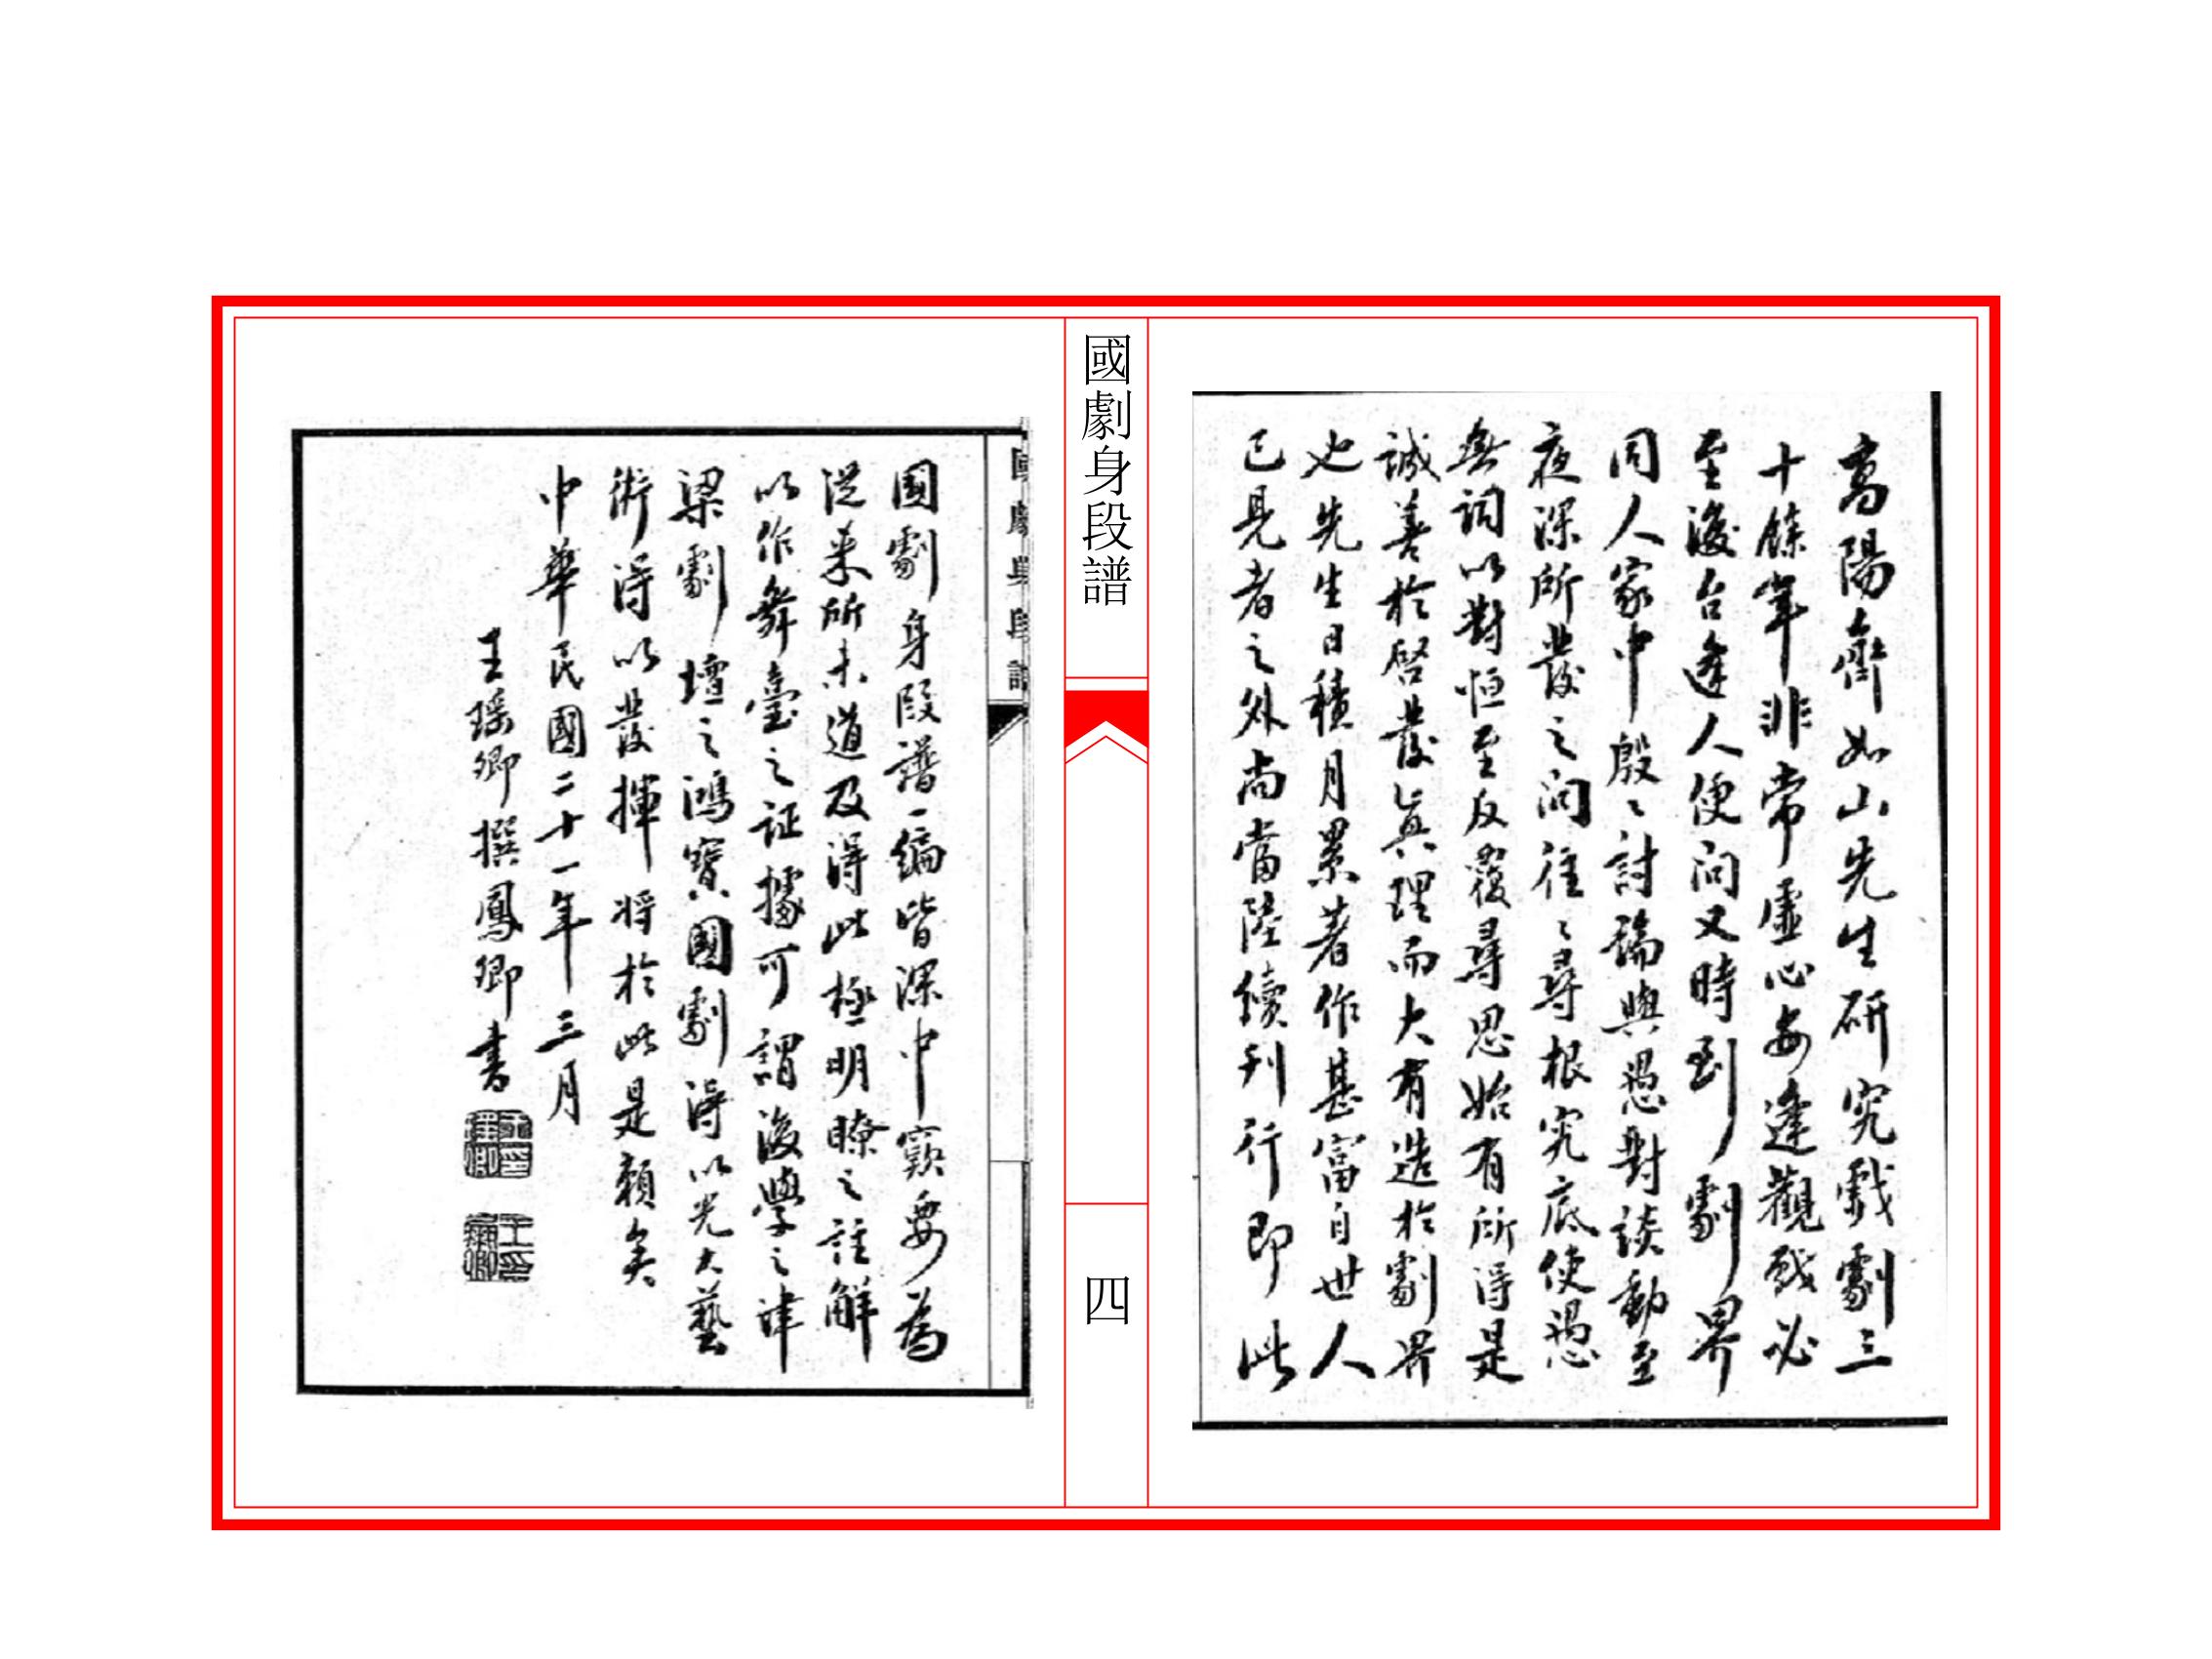 高陽齊如山先生研究戲劇三
十餘年非常虛心每逢觀戲必
至後台逢人便問又時到劇界
同人家中殷〻討論與愚對談動至
夜深所發之問往〻尋根究底使愚
無詞以對恒至反覆尋思始有所得是
誠善於啓發眞理而大有造於劇界
也先生日積月累著作甚富自世人
已見者之外尚當陸續刊行即此
國劇身段譜
四
國劇身段譜
國劇身段譜一編皆深中窾要為
從來所未道及得此極明瞭之註解
以作舞臺之証據可謂後學之津
梁劇壇之鴻寶國劇得以光大藝
術得以發揮將於此是賴矣
中華民國二十一年三月
王瑤卿撰鳳卿書